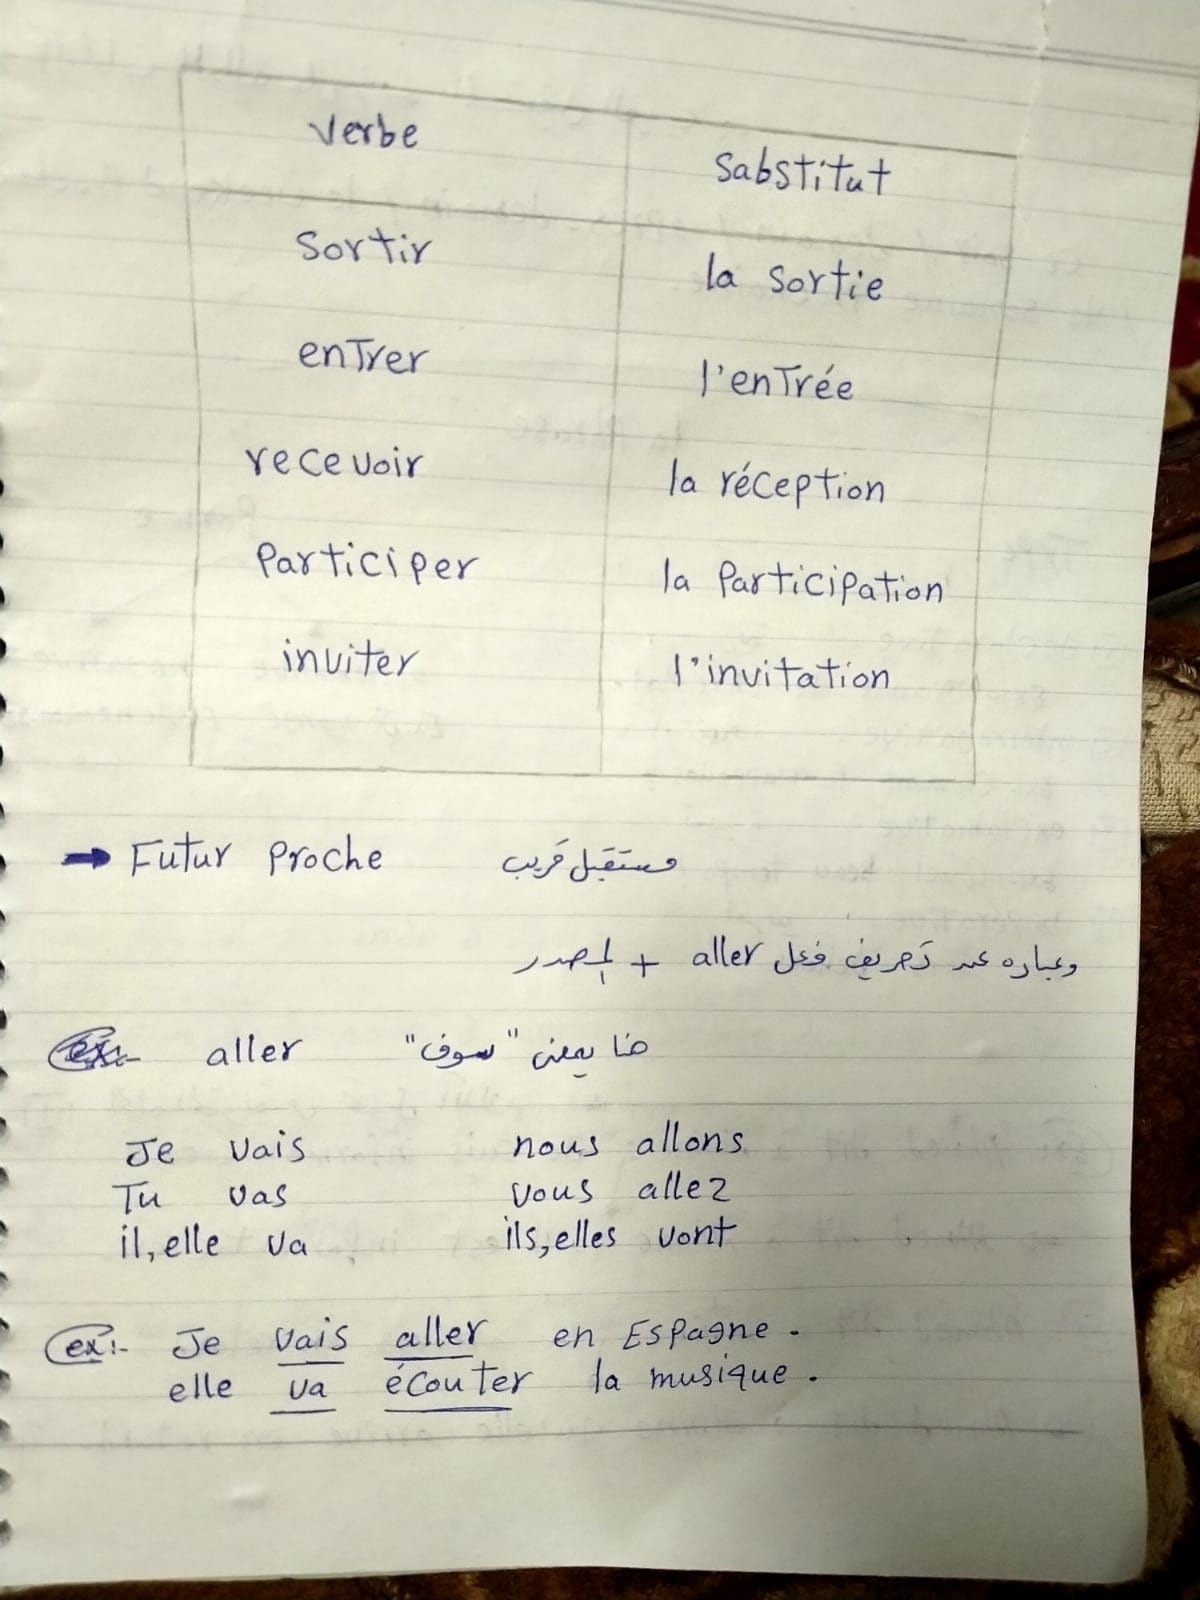 Verbe Sabstitut
Sortir la sortie
enTrer l'enTrée
recevoir la réception
Participer la Participation
inviter l'invitation
→ Futur Proche مستقبل قريب
وعباره عن تصريف فعل aller + المصدر
ex:- aller هنا بمعنى "سوف"
Je vais nous allons
Tu vas vous allez
il, elle va ils, elles vont
ex:- Je vais aller en Espagne.
elle va écouter la musique.